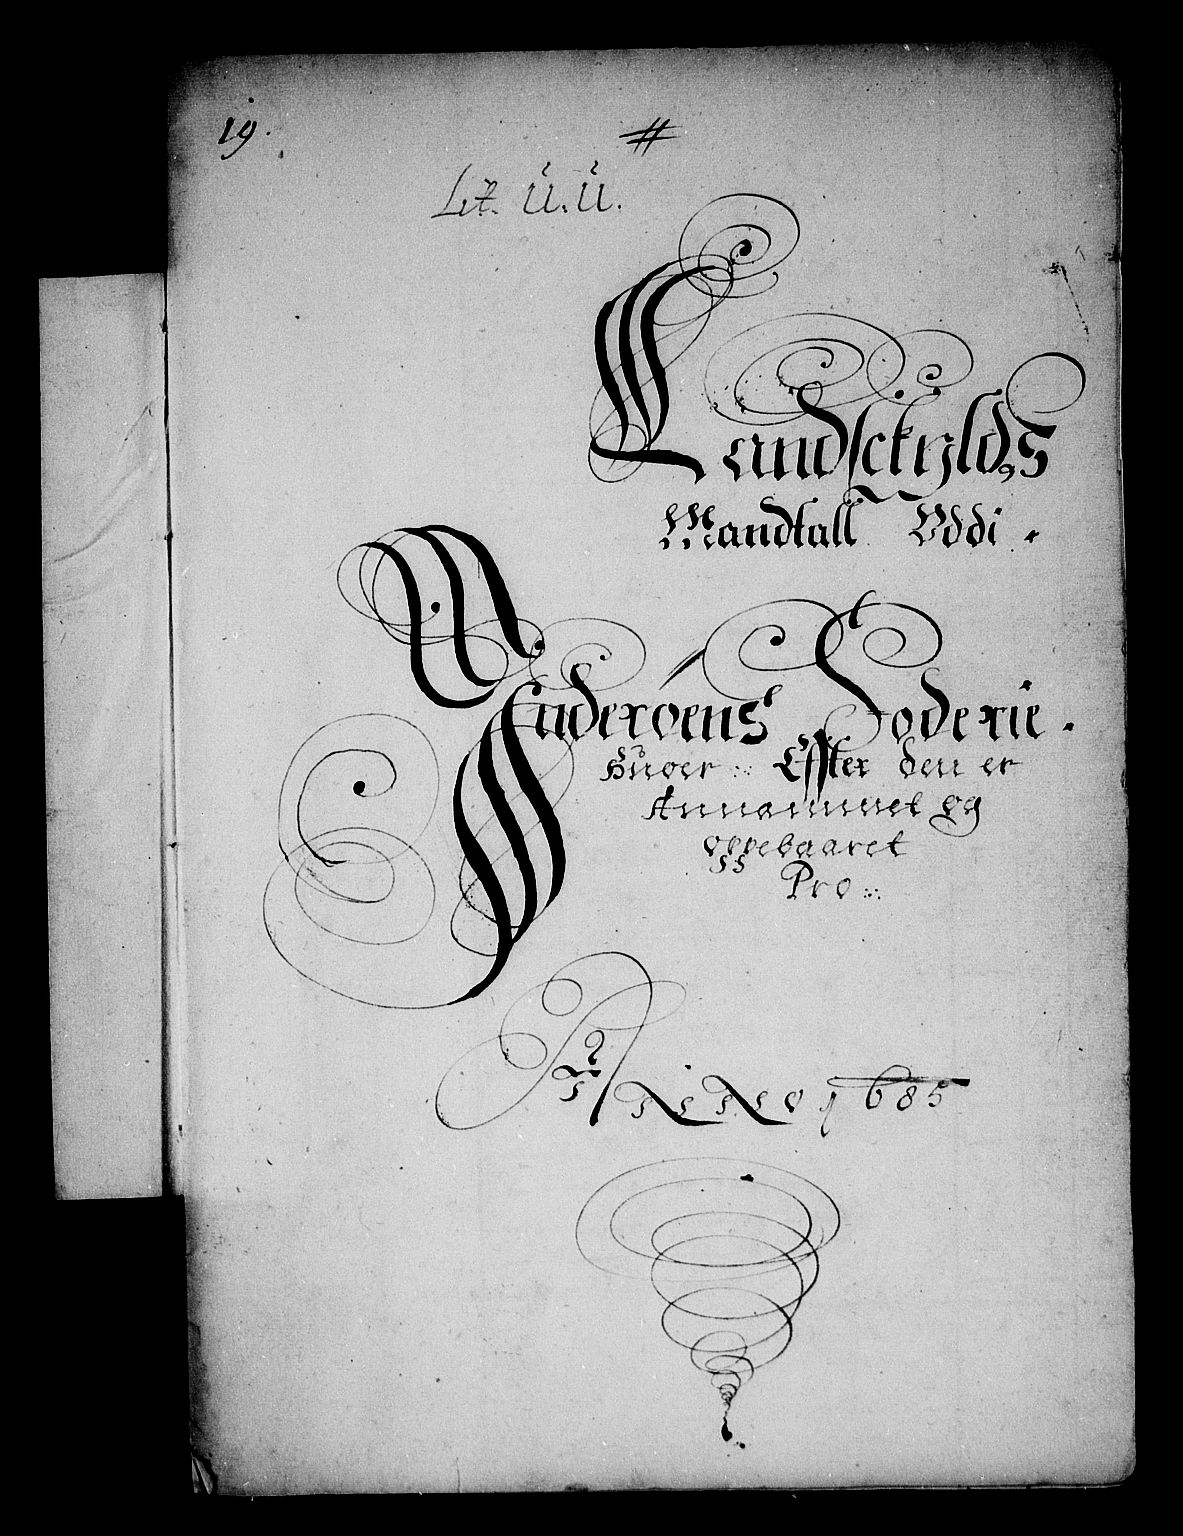 19.
#
Lit. Ü.Ü.
Landsckylds
Mandtall Vddi.
Inderöens Foderie.
Huoer :: Effter den er
Annammet og
oppebaaret
Pro ::
ANNO 1685